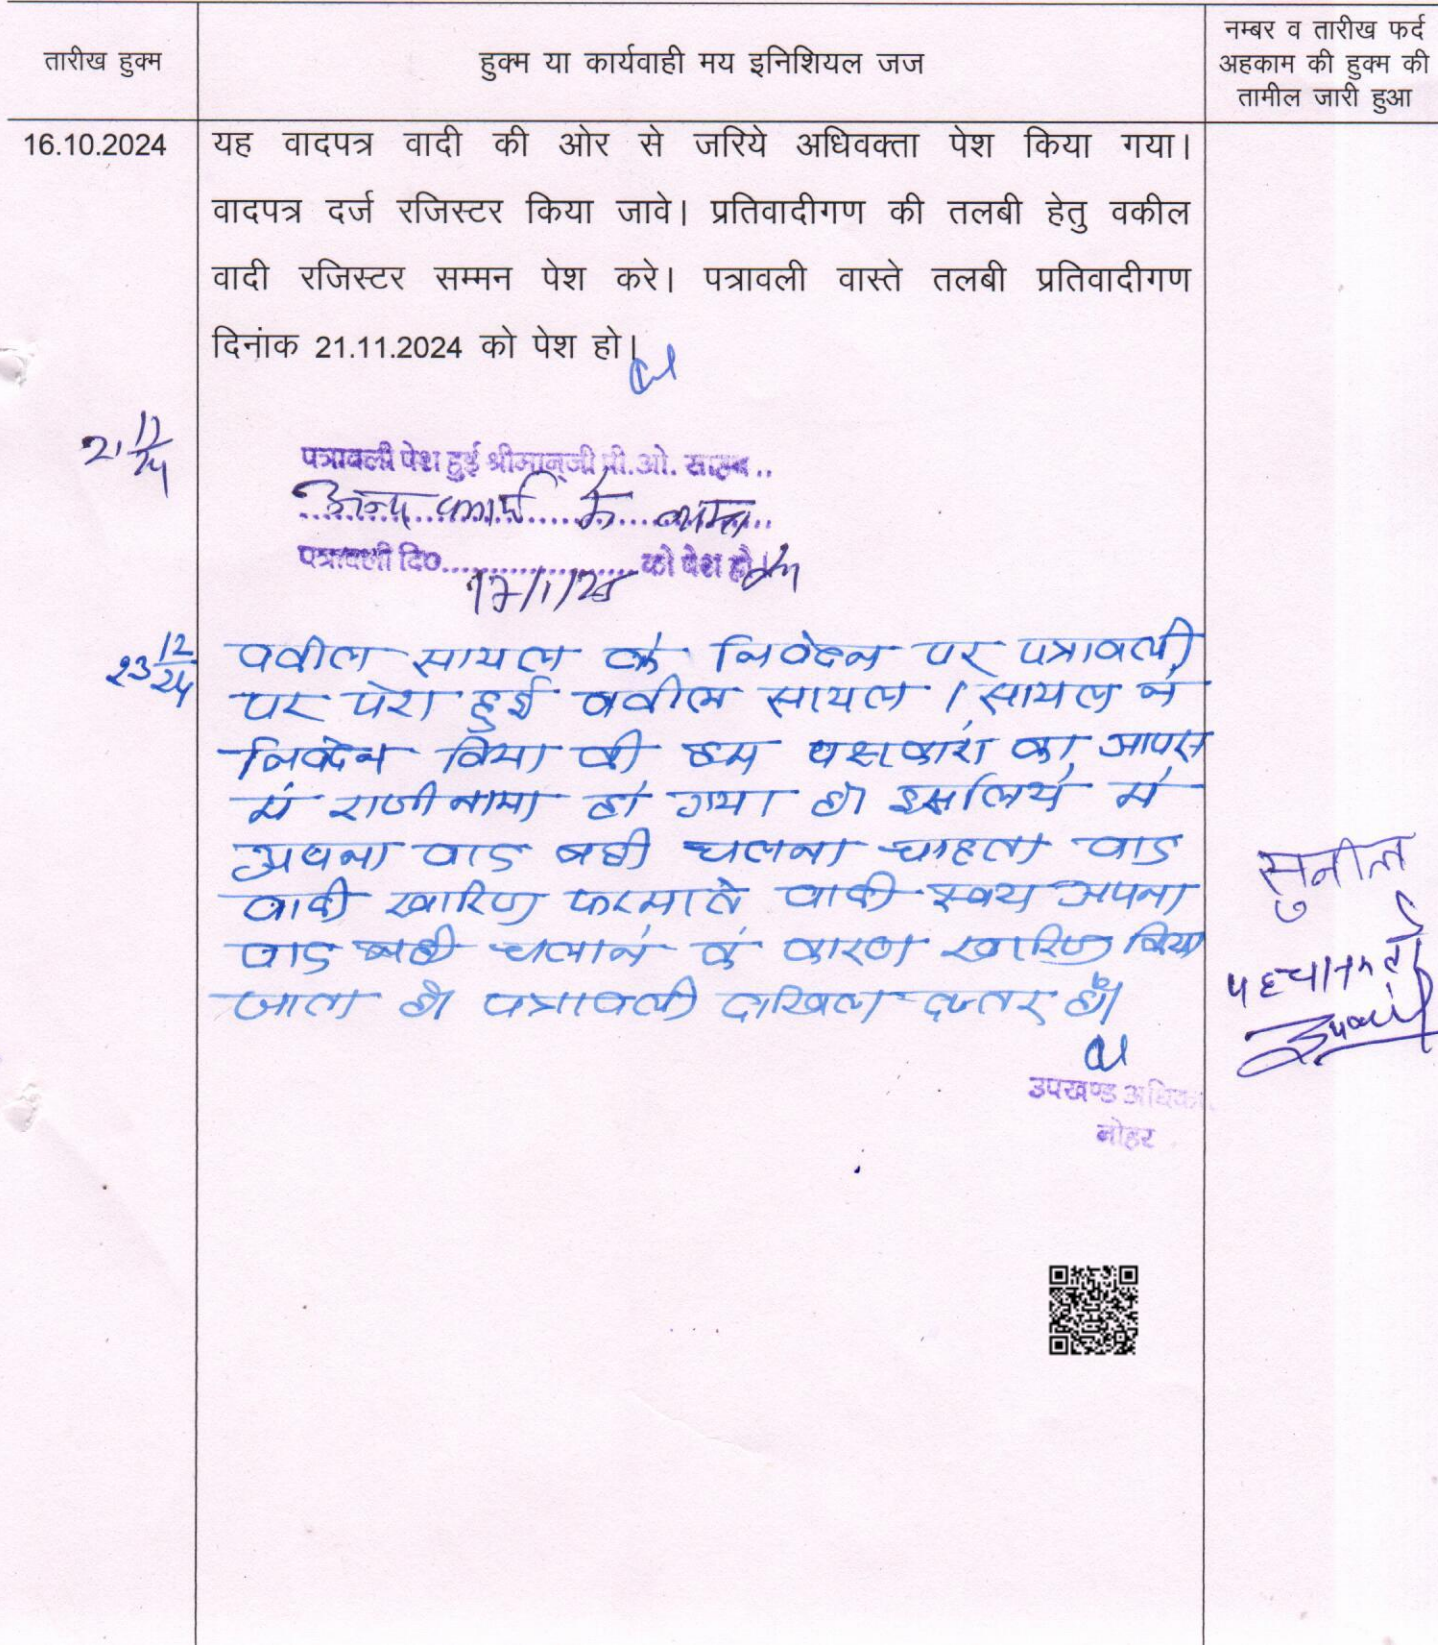 तारीख हुक्म
हुक्म या कार्यवाही मय इनिशियल जज
नम्बर व तारीख फर्द
अहकाम की हुक्म की
तामील जारी हुआ
16.10.2024
यह वादपत्र वादी की ओर से जरिये अधिवक्ता पेश किया गया।
वादपत्र दर्ज रजिस्टर किया जावे। प्रतिवादीगण की तलबी हेतु वकील
वादी रजिस्टर सम्मन पेश करे। पत्रावली वास्ते तलबी प्रतिवादीगण
दिनांक 21.11.2024 को पेश हो।
21 12/24
पत्रावली पेश हुई श्रीमान्जी पी.ओ. साहब..
अन्य कार्य में व्यस्त
पत्रावली दि०.................... को पेश हो।
17/1/25
23 12/24
वकील सायल के निवेदन पर पत्रावली
पर पेश हुई वकील सायल । सायल ने
निवेदन किया की हम पक्षकारो का आपस
में राजीनामा हो गया है। इसलिये में
अपना वाद नही चलना चाहता वाद
वादी खारिज फरमावे वादी स्वय अपना
वाद नही चलाने के कारण खारिज किया
जाता है। पत्रावली दाखिल दफ्तर हो।
सुनील
पहचानकर्ता
उपखण्ड अधिका
नोहर